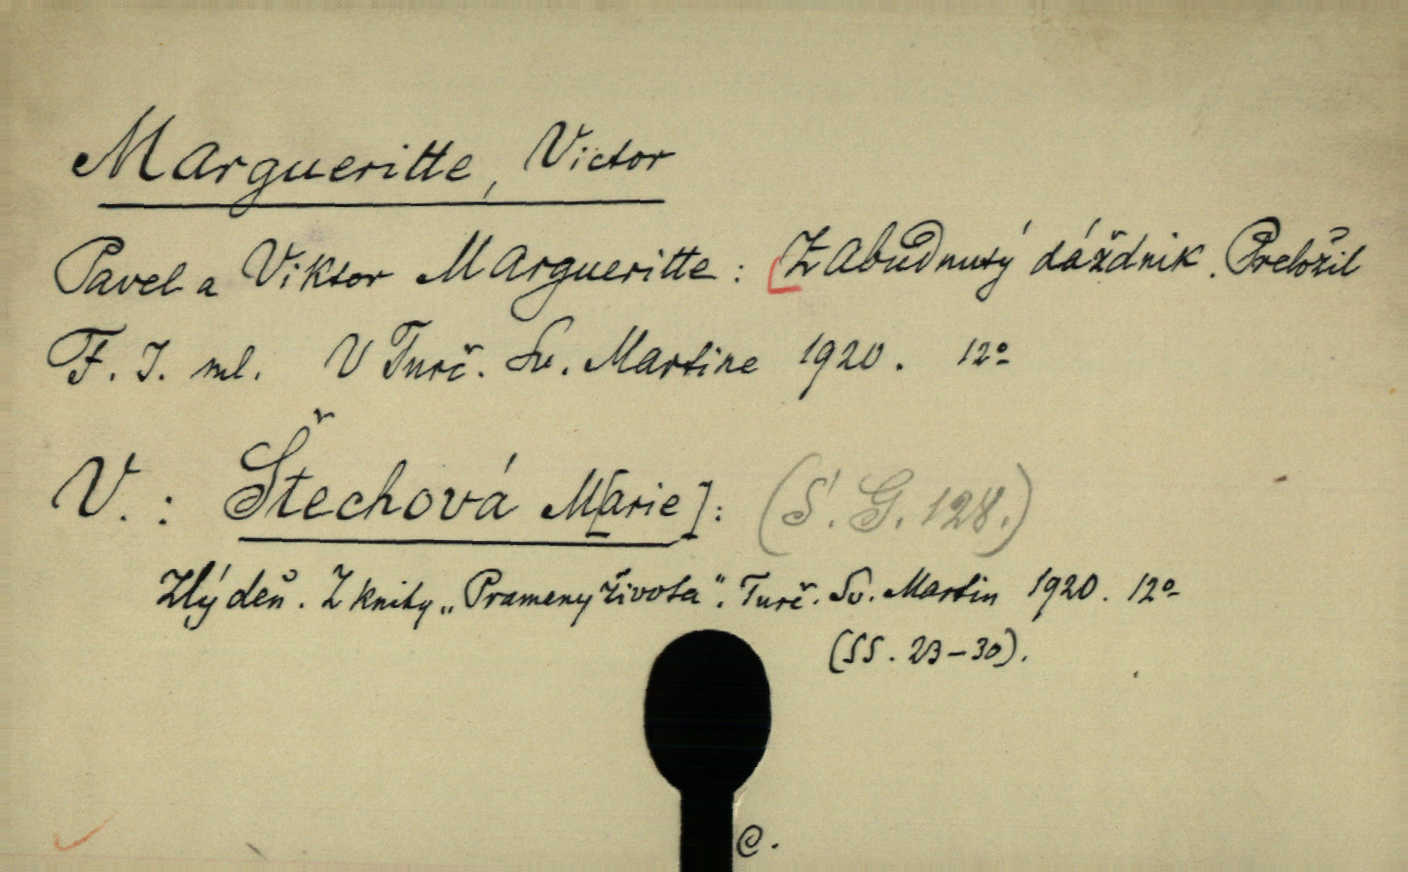 Margueritte, Victor
Pavel a Viktor Margueritte: Zabudnutý dáždnik. Preložil
F. J. ml. V Turč. Sv. Martine 1920. 12°
V.: Štechová M[arie]: (S'. G. 128.)
Zlý deň. Z knihy „Prameny života“. Turč. Sv. Martin 1920. 12°
(SS. 23–30).
C.